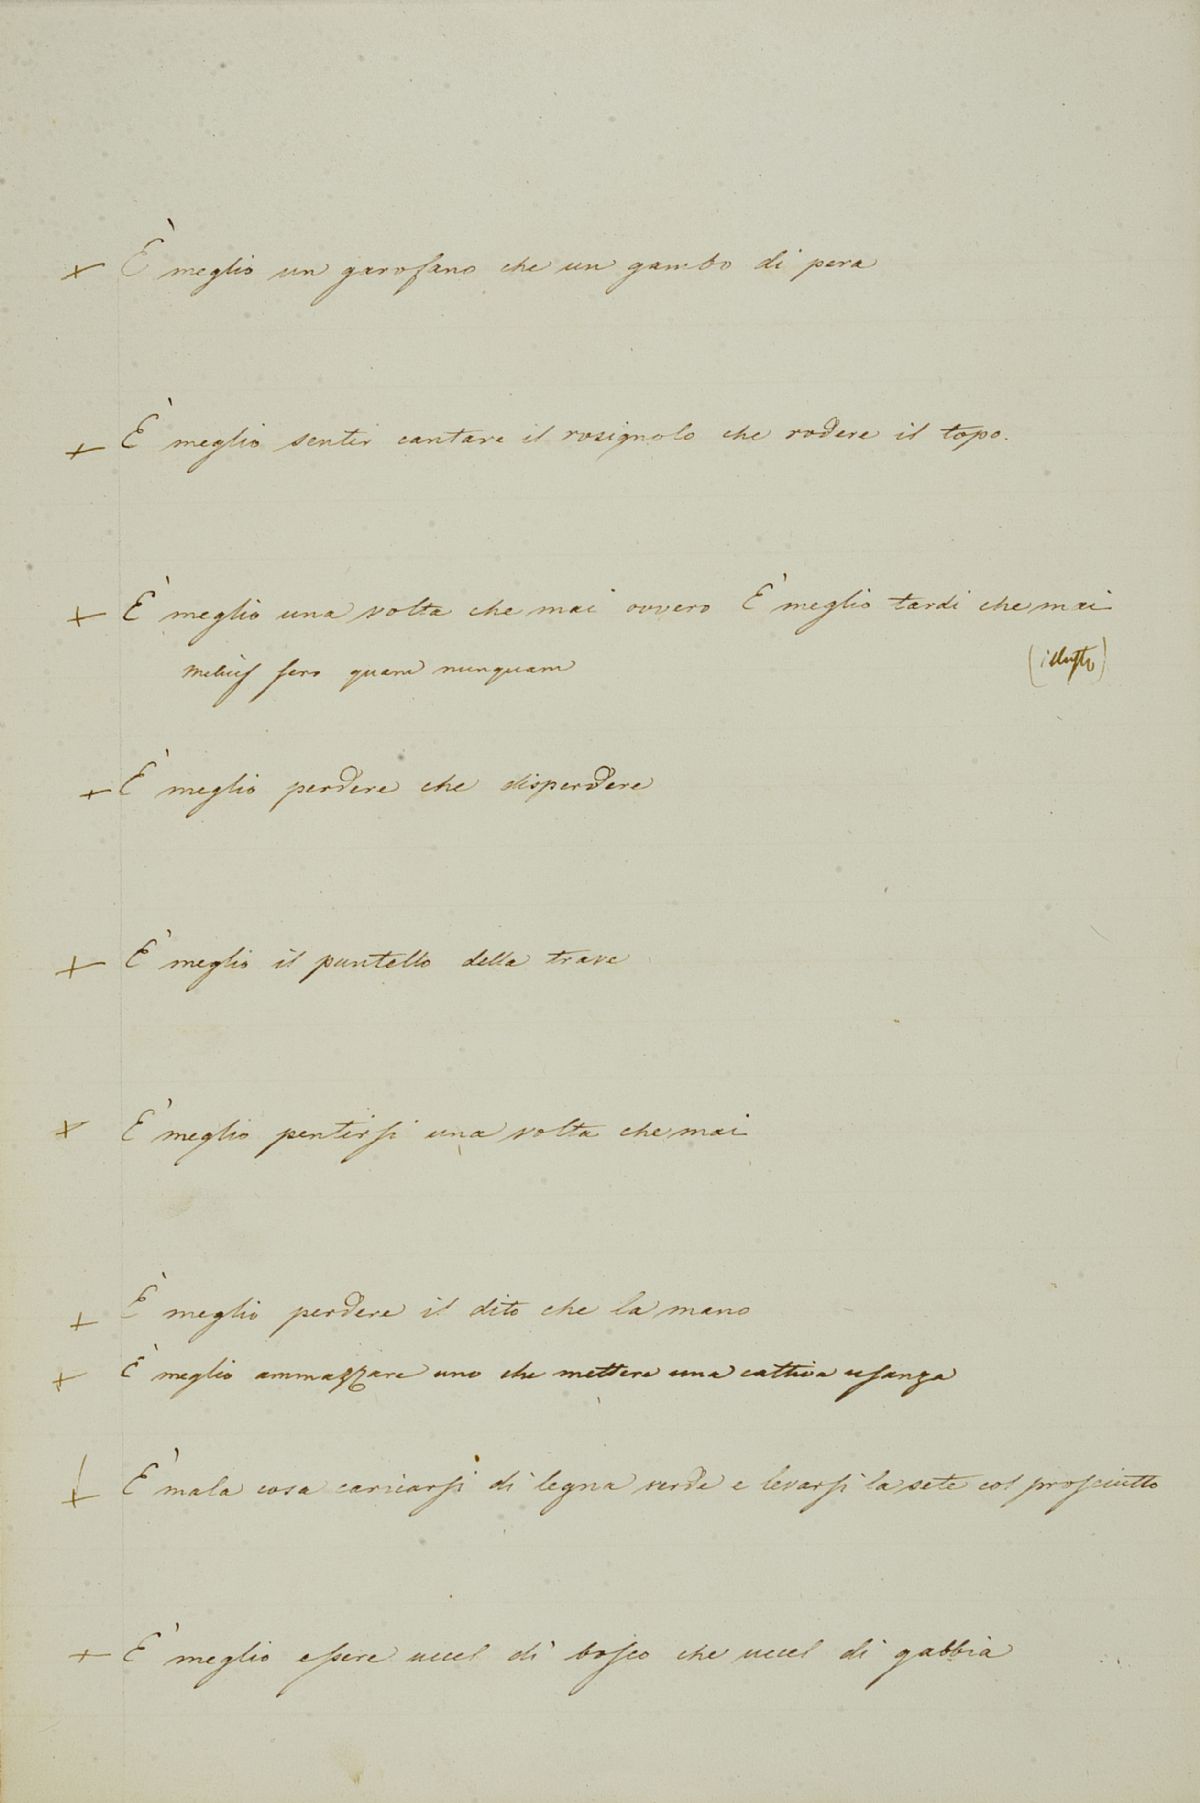 + È meglio un garofano che un gambo di pera
+ È meglio sentir cantare il rosignolo che rodere il topo.
+ È meglio una volta che mai ovvero È meglio tardi che mai
melius sero quam nunquam
+ È meglio perdere che disperdere
+ È meglio il puntello della trave
+ È meglio pentirsi una volta che mai
+ È meglio perdere il dito che la mano
+ È meglio ammazzare uno che mettere una cattiva usanza
+ È mala cosa caricarsi di legna verde e levarsi la sete col prosciutto
+ È meglio essere uccel di bosco che uccel di gabbia